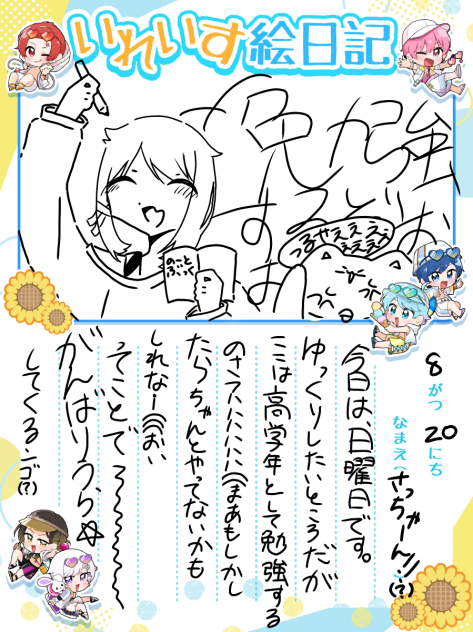 いれいす絵日記
勉強
するどぉ
お
つるやええええ
ええええ
のことーと
ろぐっく
8がつ20にち
なまえ さっちゃーん!!(?)
今日は、日曜日です。
ゆっくりしたいところだが
ここは高学年として勉強する
のさ
まあもしかし
たらちゃんとやってないかも
しれなーい
ってことでぇ〜
がんばりうら☆
してくるンゴ(?)